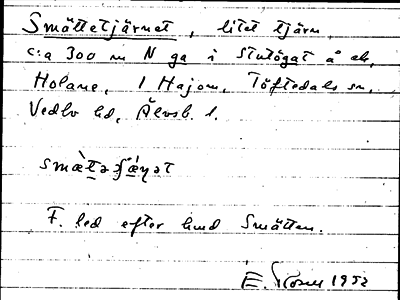 Smättetjärnet, litet tjärn,
c:a 300 m N ga i Slutögat å ek,
Holane, 1 Hajom, Töftedals sn,
Vedbo hd, Älvsb. l.
F. led efter hmd Smätten.
1952